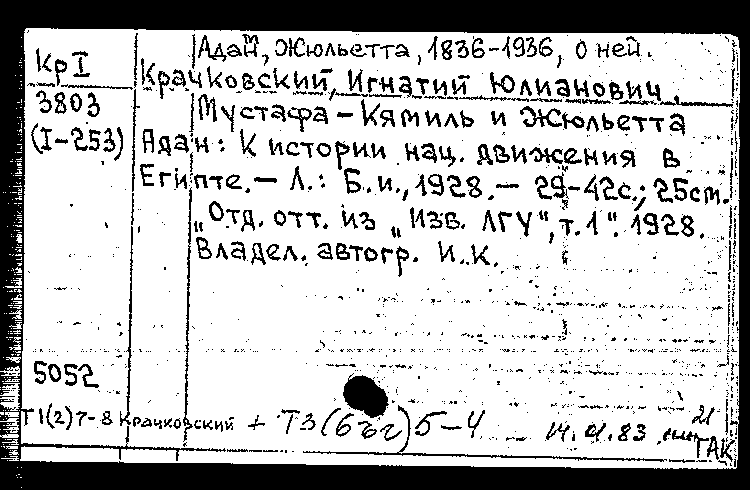 Адам, Жюльетта, 1836-1936, о ней.
КрI
Крачковский, Игнатий Юлианович.
3803
Мустафа - Кямиль и Жюльетта
(I-253)
Адан: К истории нац. движения в
Египте. — Л.: Б.и., 1928. — 29-42с.; 25см.
„Отд. отт. из „Изв. ЛГУ", т.1". 1928.
Владел. автогр. И.К.
5052
Т1(2)7-8 Крачковский + Т3(5Ег)5-4
21
ТАК